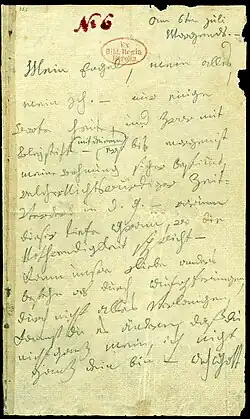 No 6
am 6ten Juli
Morgends. –
Ex
Bibl. Regia
Berolin.
Mein Engel, mein alles,
mein Ich. – nur einige
Worte heute, und zwar mit
Bleystift (mit deinem) bis morgen ist
meine Wohnung sicher bestimmt,
welcher Nichtswürdiger Zeit-
verderb in d. g. – warum
dieser tiefe Gram, wo die
Nothwendigkeit spricht –
Kann unsre Liebe anders
bestehn als durch Aufopferungen,
durch nicht alles verlangen,
kannst du es ändern, daß du
nicht ganz mein, ich nicht
ganz dein bin – Ach Gott